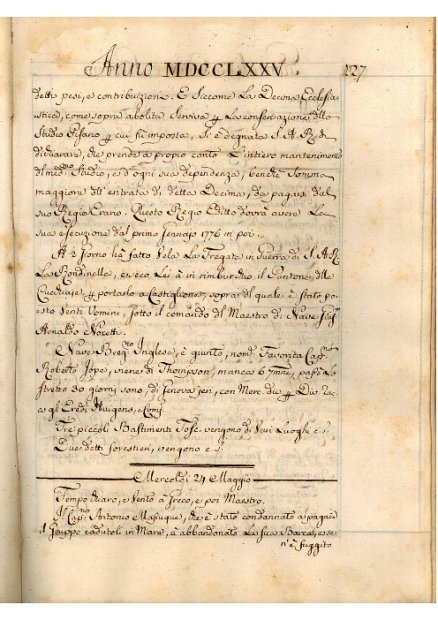 Anno MDCCLXXV. 227
detti pesi, e contribuzioni. E Siccome La Decima Ecclesia-
stica, come sopra abolita Serviva p La conservazione dello
Studio Pisano p cui fù imposta, Si è degnata S. A. R. di
dichiarare, che prende a proprio conto L'intiero mantenimento
di med.mo Studio, e d'ogni sua dipendenza, benchè Somma
maggiore dell'entrata di detta Decima, da pagarsi dal
suo Regio Erario. Questo Regio Editto dovrà avere La
sua esecuzione dal primo Gennajo 1776 in poi.
A giorno hà fatto Vela La Fregata in Guerra di S. A. R.
La Rondinella, e seco Lei à in rimburchio il Puntone delle
p portarlo a Castiglione, sopra del quale è stato po-
sto Venti Uomini, sotto il comando del Maestro di Nave
Arnaldo
E Nave Brig.no Inglese, è giunto, nom.a Favorita Cap.no
Roberto Jope, viene di Thompson, manca 6 7mne, passò Lo
Stretto 30 giorni sono, di Genova jeri, con Merc. div.e p Div.
a gl'Eredi Huigens, e Comp.
Tre piccoli Bastimenti Tosc. vengono di Varj Luoghi e S.
Due detti forestieri, vengono e S.
Mercoldi 24 Maggio
Tempo chiaro, e Vento a Greco, e poi Maestro.
Il Cap.no Antonio che è stato condannato a pagare
il caduto li in Mare, à abbandonato La sua Barca, e se
n'è fuggito